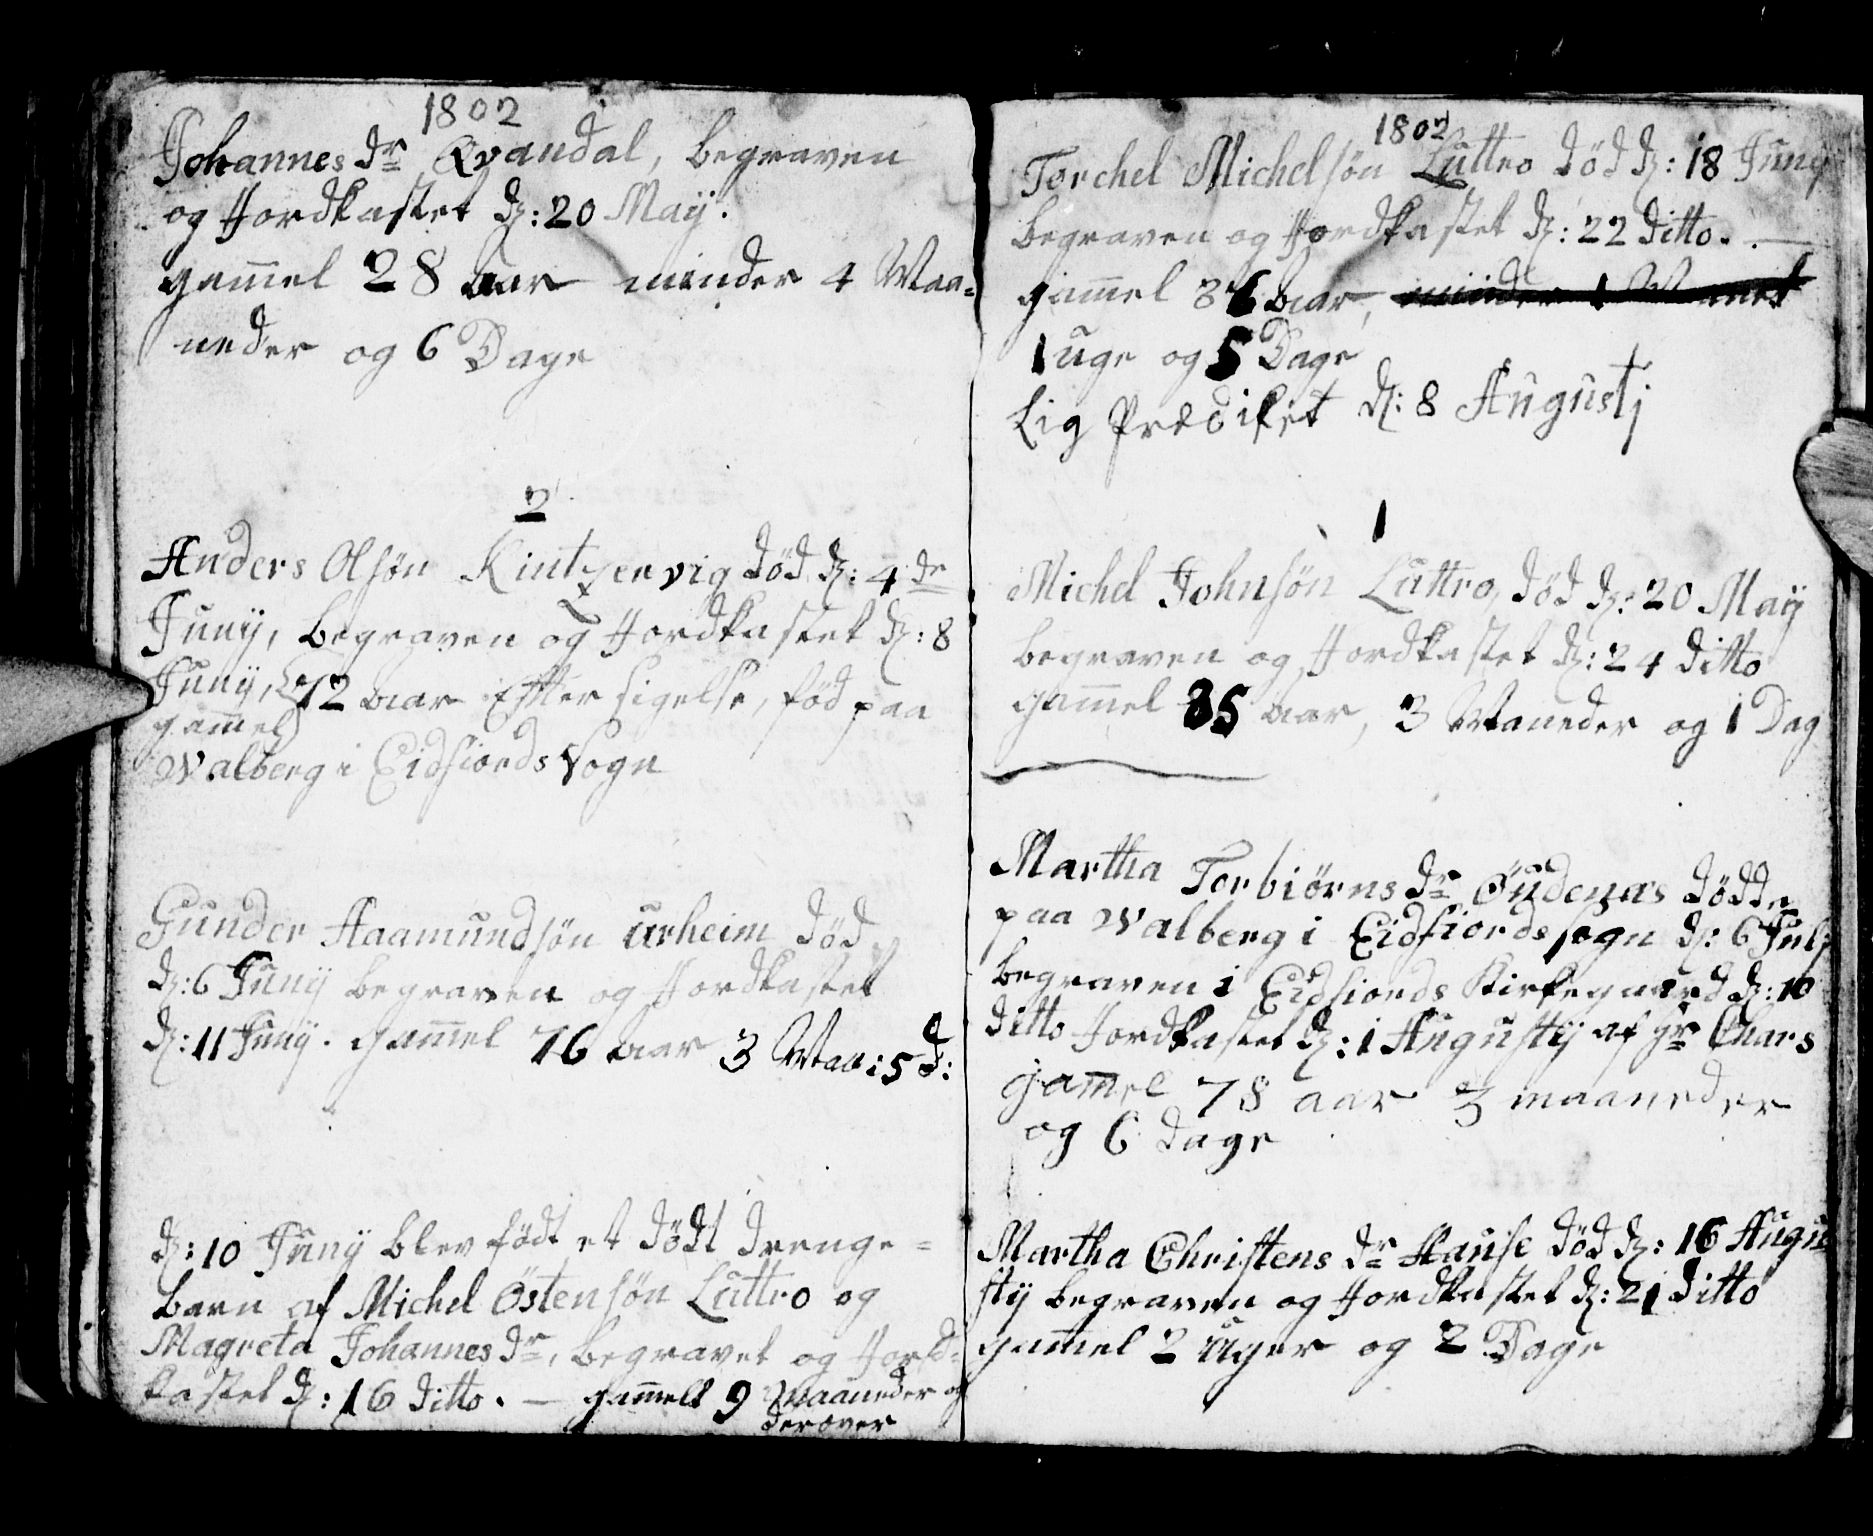 1802
Johannes dr Qvandal, begraven
og Jordkastet d: 20 Maij.
gam̄el 28 aar minder 4 Maa=
neder og 6 Dage
2
Anders Olsøn Kintzervig død d: 4 de
Junij, begraven og Jordkastet d: 8
Junij, 72 aar Efter sigelse, fød paa
gam̄el
Walberg i Eidfiords Sogn
Gunder Aamundsøn urheim død
d: 6 Junij begraven og Jordkastet
d: 11 Junij. gam̄el 76 aar 3 Maa: 5 d:
d: 10 Junij blev født et dødt drenge=
barn af Michel Østensøn Luttro og
Magreta Johannes dr, begravet og Jord=
kastet d: 16 ditto. — gam̄elt 9 maaneder og
derover
1802
Torchel Michelsøn Luttro død d: 18 Junij
begraven og Jordkastet d: 22 ditto. —
gam̄el 36 aar, minder 1 Maanet
1 uge og 5 Dage
Lig Prædiket d: 8 Augustj
1
Michel Johnsøn Luttro, død d: 20 Maij
begraven og Jordkastet d: 24 ditto
gam̄el 35 aar, 3 Maaneder og 1 Dag
Martha Torbiørns dr Øudenæs dødde
paa Walberg i Eidfiords sogn d: 6 Julj
begraven i Eidfiords Kirkegaard d: 10
ditto Jordkastet d: 1 Augustij af Hr Chars
gam̄el 78 aar 3 maaneder
og 6 dage
Martha Christens dr Hause død d: 16 Augu
stij begraven og Jordkastet d: 21 ditto
gam̄el 2 uger og 2 Dage